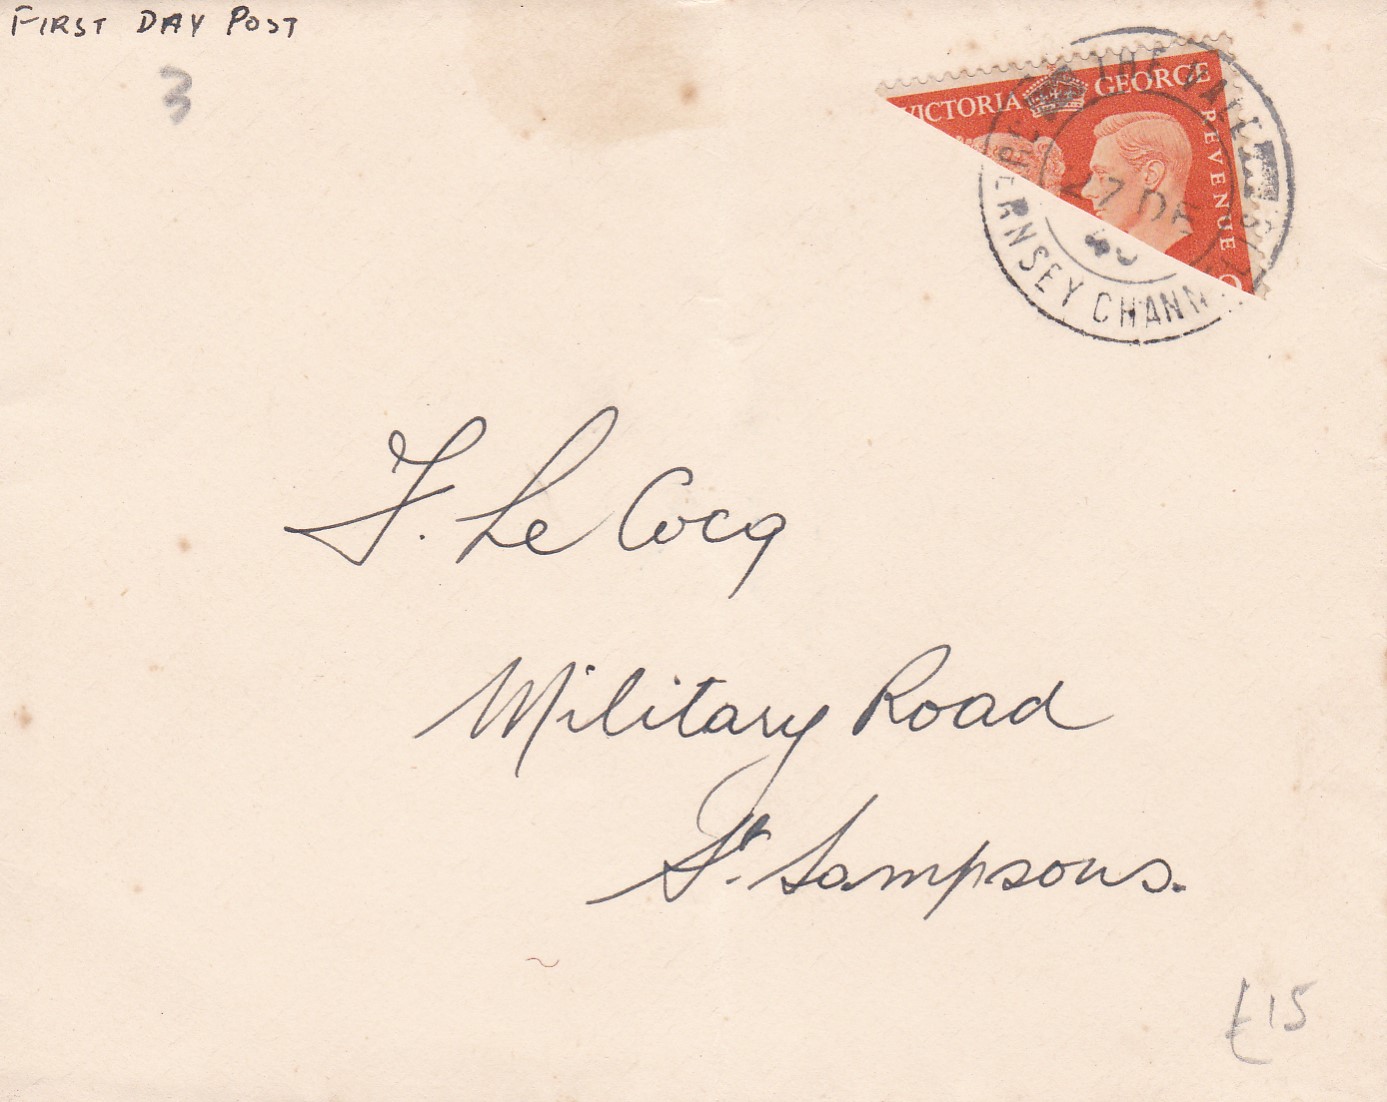 FIRST DAY POST
3
VICTORIA GEORGE
REVENUE
THE VALE
GUERNSEY CHANN
27 DE
40
F. Le Cocq
Military Road
St. Sampsons.
£15